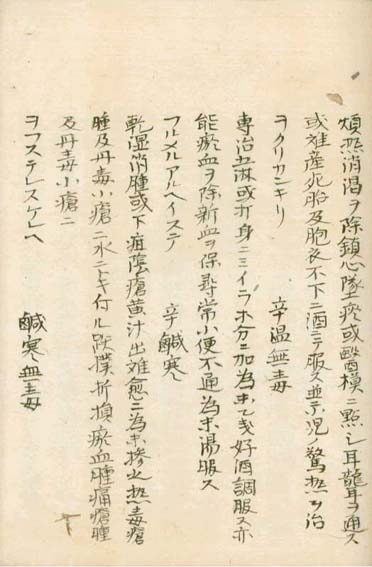 煩熱消渇ヲ除鎮心墜痰或醫模ニ點シ耳龍耳ヲ通ス
或难産死胎及胞衣不下ニ酒ニテ服ス並ニ小児ノ驚熱ヲ治
ヲクリカンキリ 辛温無毒
専治五淋或打身ニミイラ等分ニ加為末乄㦮好酒調服ス亦
能瘀血ヲ除新血ヲ保尋常小便不通為末湯服ス
フルメルアルヘイステ 辛鹹寒
乾湿消腫或下疳陰瘡黄汁出难愈ニ為末摻之热毒瘡
腫及丹毒小瘡ニ水ニトキ付ル跌撲折損瘀血腫痛瘡腫
及丹毒小瘡ニ
ヲフステレスケヘ 鹹寒無毒